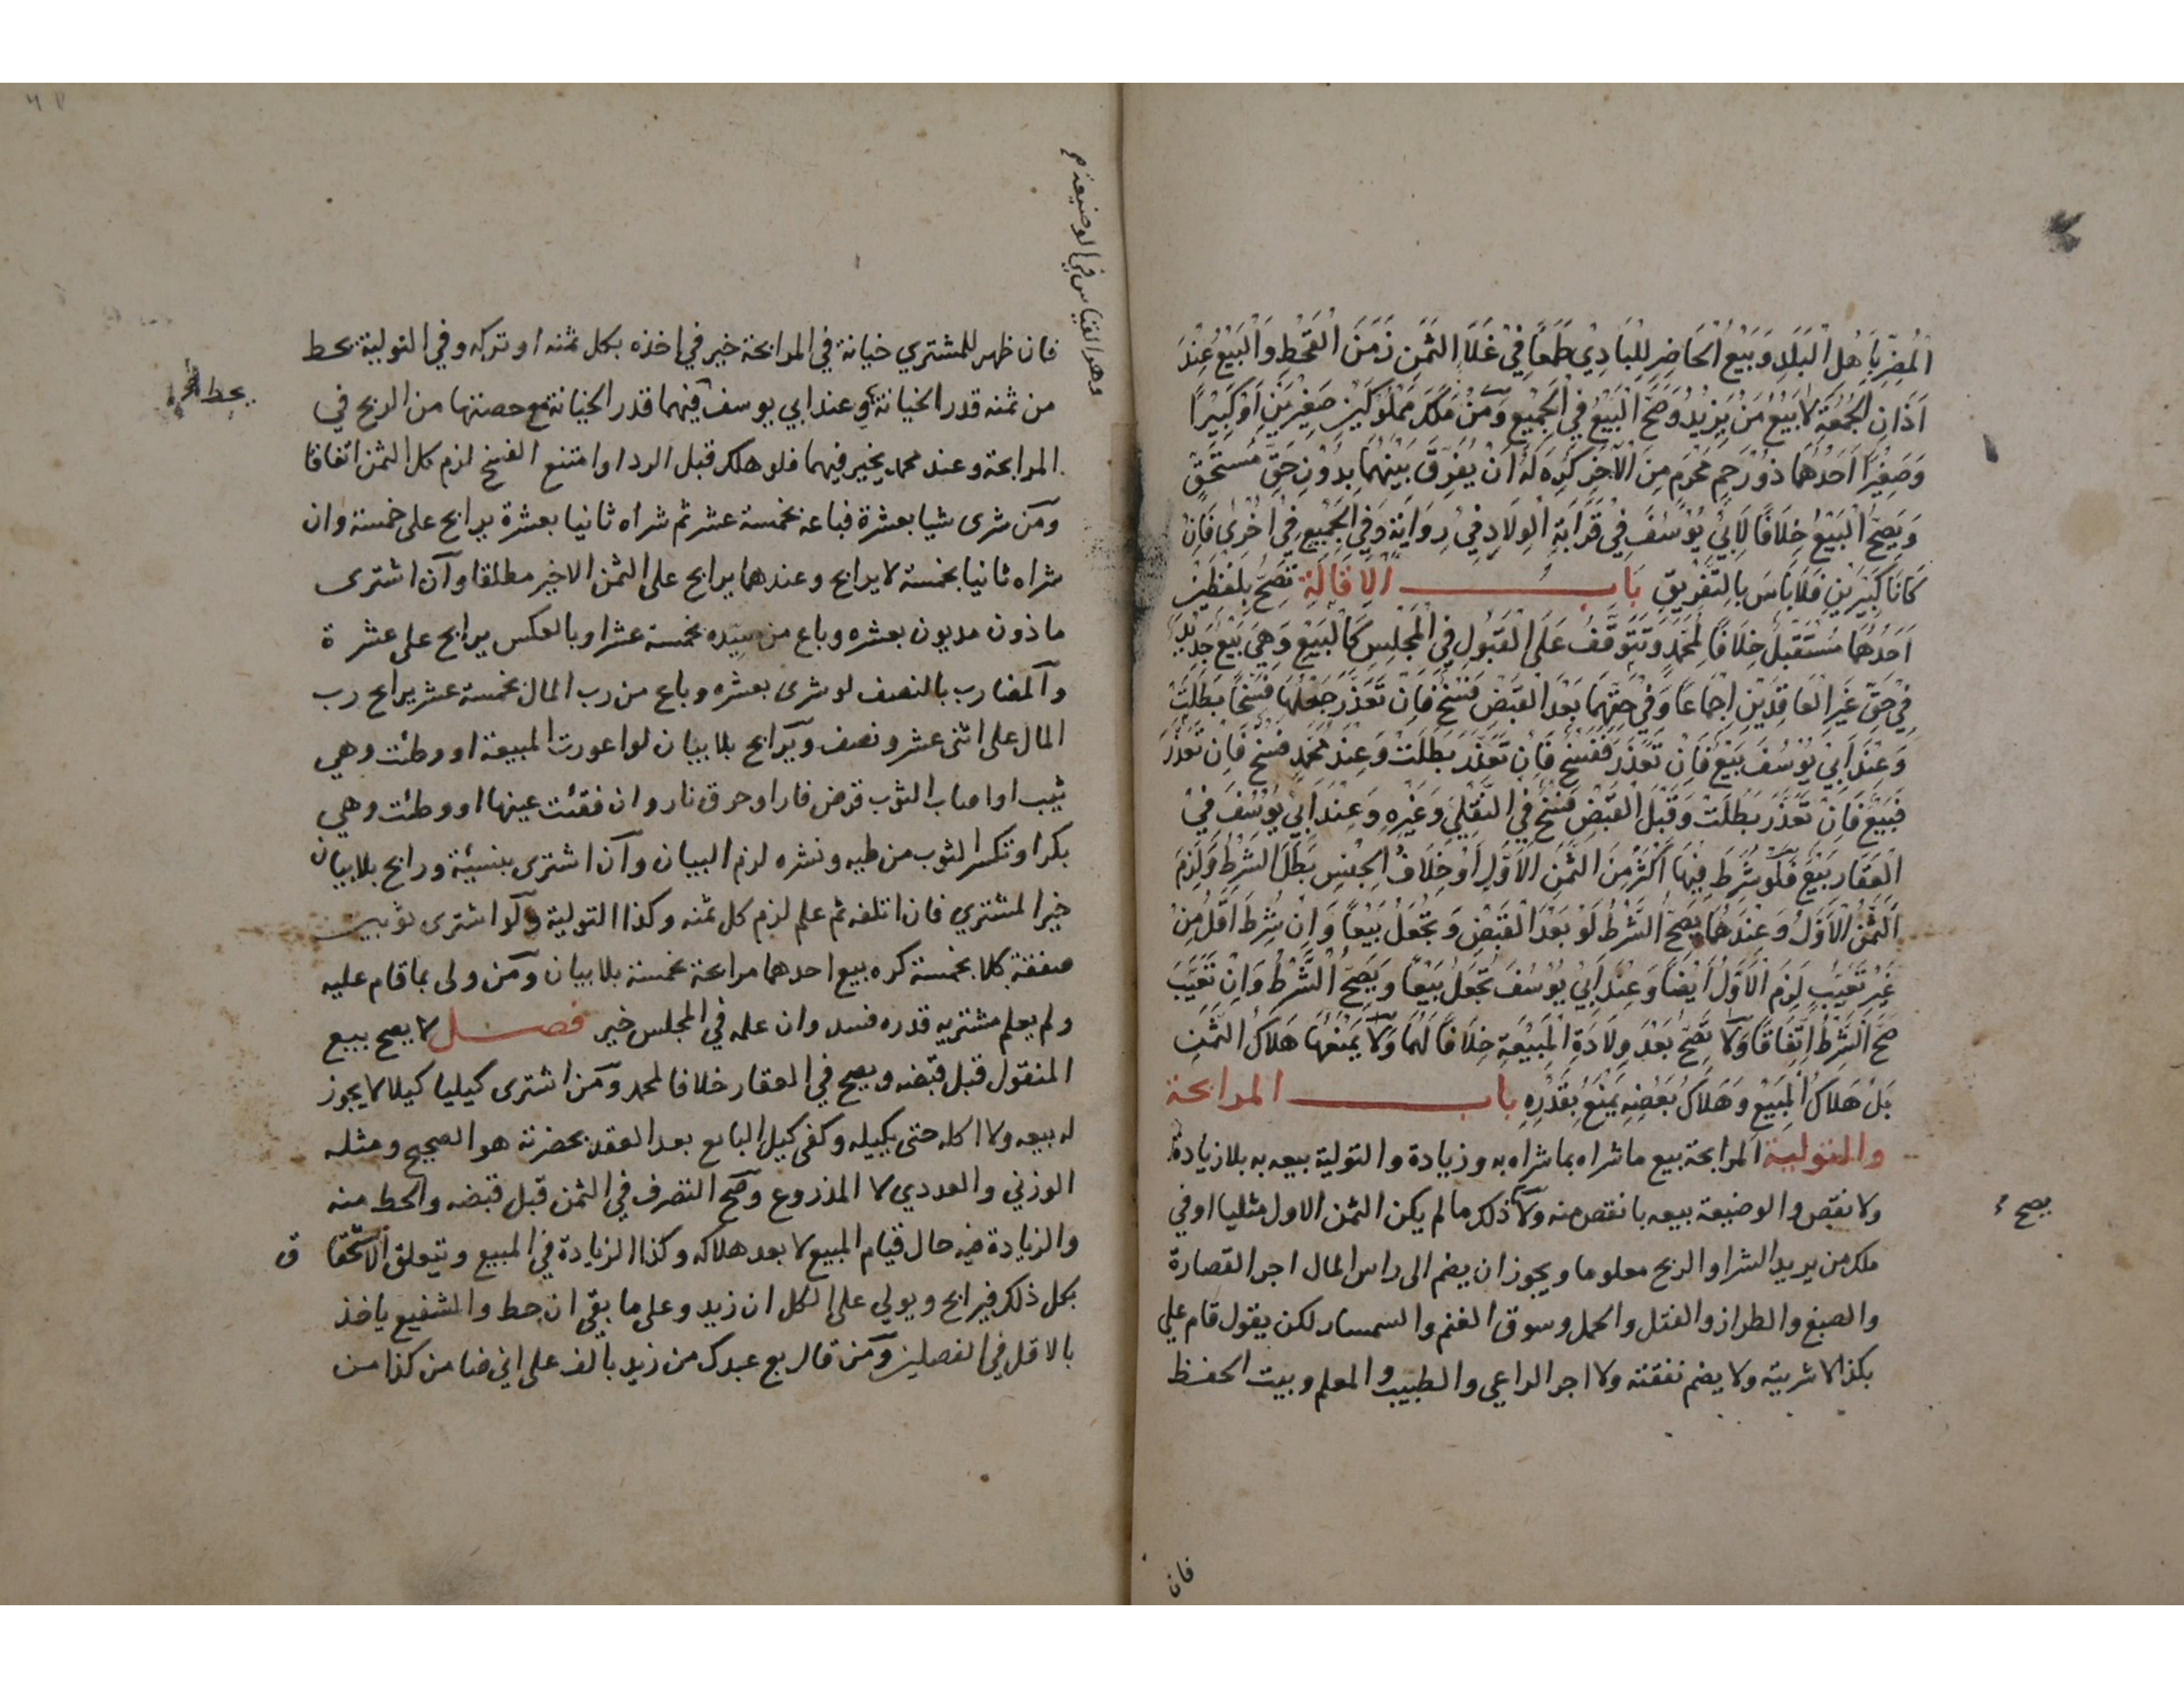 المُضِرِّ بِاَهْلِ الْبَلَدِ وَبَيْعُ الْحَاضِرِ لِلْبَادِيْ طَمَعًا فِيْ غَلَا الثَّمَنِ زَمَنَ الْقَحْطِ وَالْبَيْعُ عِنْدَ
اَذَانِ الْجُمُعَةِ لَا بَيْعُ مَنْ يَزِيْدُ وَصَحَّ الْبَيْعُ فِي الْجَمِيْعِ وَمَنْ مَلَكَ مَمْلُوْكَيْنِ صَغِيْرَيْنِ اَوْ كَبِيْرًا
وَصَغِيْرًا اَحَدُهُمَا ذُوْ رَحِمٍ مَحْرَمٍ مِنَ الْآخَرِ كُرِهَ لَهُ اَنْ يُفَرِّقَ بَيْنَهُمَا بِدُوْنِ حَقٍّ مُسْتَحَقٍّ
وَيَصِحُّ الْبَيْعُ خِلَافًا لِاَبِيْ يُوْسُفَ فِيْ قَرَابَةِ الْوِلَادِ فِيْ رِوَايَةٍ وَفِي الْجَمِيْعِ فِيْ اُخْرٰى فَاِنْ
كَانَا كَبِيْرَيْنِ فَلَا بَاسَ بِالتَّفْرِيْقِ بَابُ الْاِقَالَةِ تَصِحُّ بِلَفْظَيْنِ
اَحَدُهُمَا مُسْتَقْبَلٌ خِلَافًا لِمُحَمَّدٍ وَتَتَوَقَّفُ عَلَى الْقَبُوْلِ فِي الْمَجْلِسِ كَالْبَيْعِ وَهِيَ بَيْعٌ جَدِيْدٌ
فِيْ حَقِّ غَيْرِ الْعَاقِدَيْنِ اِجْمَاعًا وَفِيْ حَقِّهِمَا بَعْدَ الْقَبْضِ فَسْخٌ فَاِنْ تَعَذَّرَ جَعْلُهَا فَسْخًا بَطَلَتْ
وَعِنْدَ اَبِيْ يُوْسُفَ بَيْعٌ فَاِنْ تَعَذَّرَ فَفَسْخٌ فَاِنْ تَعَذَّرَ بَطَلَتْ وَعِنْدَ مُحَمَّدٍ فَسْخٌ فَاِنْ تَعَذَّرَ
فَبَيْعٌ فَاِنْ تَعَذَّرَ بَطَلَتْ وَقَبْلَ الْقَبْضِ فَسْخٌ فِي النَّقْلِيِّ وَغَيْرِهِ وَعِنْدَ اَبِيْ يُوْسُفَ فِيْ
الْعَقَارِ بَيْعٌ فَلَوْ شُرِطَ فِيْهَا اَكْثَرُ مِنَ الثَّمَنِ الْاَوَّلِ اَوْ خِلَافُ الْجِنْسِ بَطَلَ الشَّرْطُ وَلَزِمَ
الثَّمَنُ الْاَوَّلُ وَعِنْدَهُمَا يَصِحُّ الشَّرْطُ لَوْ بَعْدَ الْقَبْضِ وَتُجْعَلُ بَيْعًا وَاِنْ شُرِطَ اَقَلُّ مِنْ
غَيْرِ تَعَيُّبٍ لَزِمَ الْاَوَّلُ اَيْضًا وَعِنْدَ اَبِيْ يُوْسُفَ تُجْعَلُ بَيْعًا وَيَصِحُّ الشَّرْطُ وَاِنْ تَعَيَّبَ
صَحَّ الشَّرْطُ اِتِّفَاقًا وَلَا تَصِحُّ بَعْدَ وِلَادَةِ الْمَبِيْعَةِ خِلَافًا لَهُمَا وَلَا يَمْنَعُهَا هَلَاكُ الثَّمَنِ
بَلْ هَلَاكُ الْمَبِيْعِ وَهَلَاكُ بَعْضِهِ يَمْنَعُ بِقَدْرِهِ باب المرابحة
والتولية المرابحة بيع ما شراه بما شراه به وزيادة والتولية بيعه به بلا زيادة
ولا نقص والوضيعة بيعه بانقص منه ولا ذلك ما لم يكن الثمن الاول مثليا او في
يصح
ملك من يريد الشرا والربح معلوما ويجوز ان يضم الى راس المال اجر القصارة
والصبغ والطراز والفتل والحمل وسوق الغنم والسمسار لكن يقول قام علي
بكذا لا شريته ولا يضم نفقته ولا اجر الراعي والطبيب والمعلم وبيت الحفظ
فان
وهو القياس في الوضيعة م
فان ظهر للمشتري خيانة في المرابحة خير في اخذه بكل ثمنه او تركه وفي التولية يحط
يحط
من ثمنه قدر الخيانة وعند ابي يوسف فيهما قدر الخيانة مع حصتها من الربح في
المرابحة وعند محمد يخير فيهما فلو هلك قبل الرد او امتنع الفسخ لزم كل الثمن اتفاقا
ومن شرى شيا بعشرة فباعه بخمسة عشر ثم شراه ثانيا بعشرة يرابح على خمسة وان
شراه ثانيا بخمسة لا يرابح وعندهما يرابح على الثمن الاخير مطلقا وان اشترى
ماذون مديون بعشره وباع من سيده بخمسة عشر او بالعكس يرابح على عشرة
والمضارب بالنصف لو شرى بعشره وباع من رب المال بخمسة عشر يرابح رب
المال على اثنى عشر ونصف ويرابح بلا بيان لو اعورت المبيعة او وطئت وهي
ثيب او اصاب الثوب قرض فار او حرق نار وان فقئت عينها او وطئت وهي
بكر او تكسر الثوب من طيه ونشره لزم البيان وان اشترى بنسيئة ورابح بلا بيان
خير المشتري فان اتلفه ثم علم لزم كل ثمنه وكذا التولية ولو اشترى ثوبين
صفقة كلا بخمسة كره بيع احدهما مرابحة بخمسة بلا بيان ومن ولى بما قام عليه
ولم يعلم مشتريه قدره فسد وان علمه في المجلس خير فصل لا يصح بيع
المنقول قبل قبضه ويصح في العقار خلافا لمحمد ومن اشترى كيليا كيلا لا يجوز
له بيعه ولا اكله حتى يكيله وكفى كيل البايع بعد العقد بحضرته هو الصحيح ومثله
الوزني والعددي لا المذروع وصح التصرف في الثمن قبل قبضه والحط منه
والزيادة فيه حال قيام المبيع لا بعد هلاكه وكذا الزيادة في المبيع ويتعلق الاستحقا ق
بكل ذلك فيرابح ويولي على الكل ان زيد وعلى ما بقي ان حط والشفيع ياخذ
بالاقل في الفصلين ومن قال بع عبدك من زيد بالف على اني ضامن كذا من